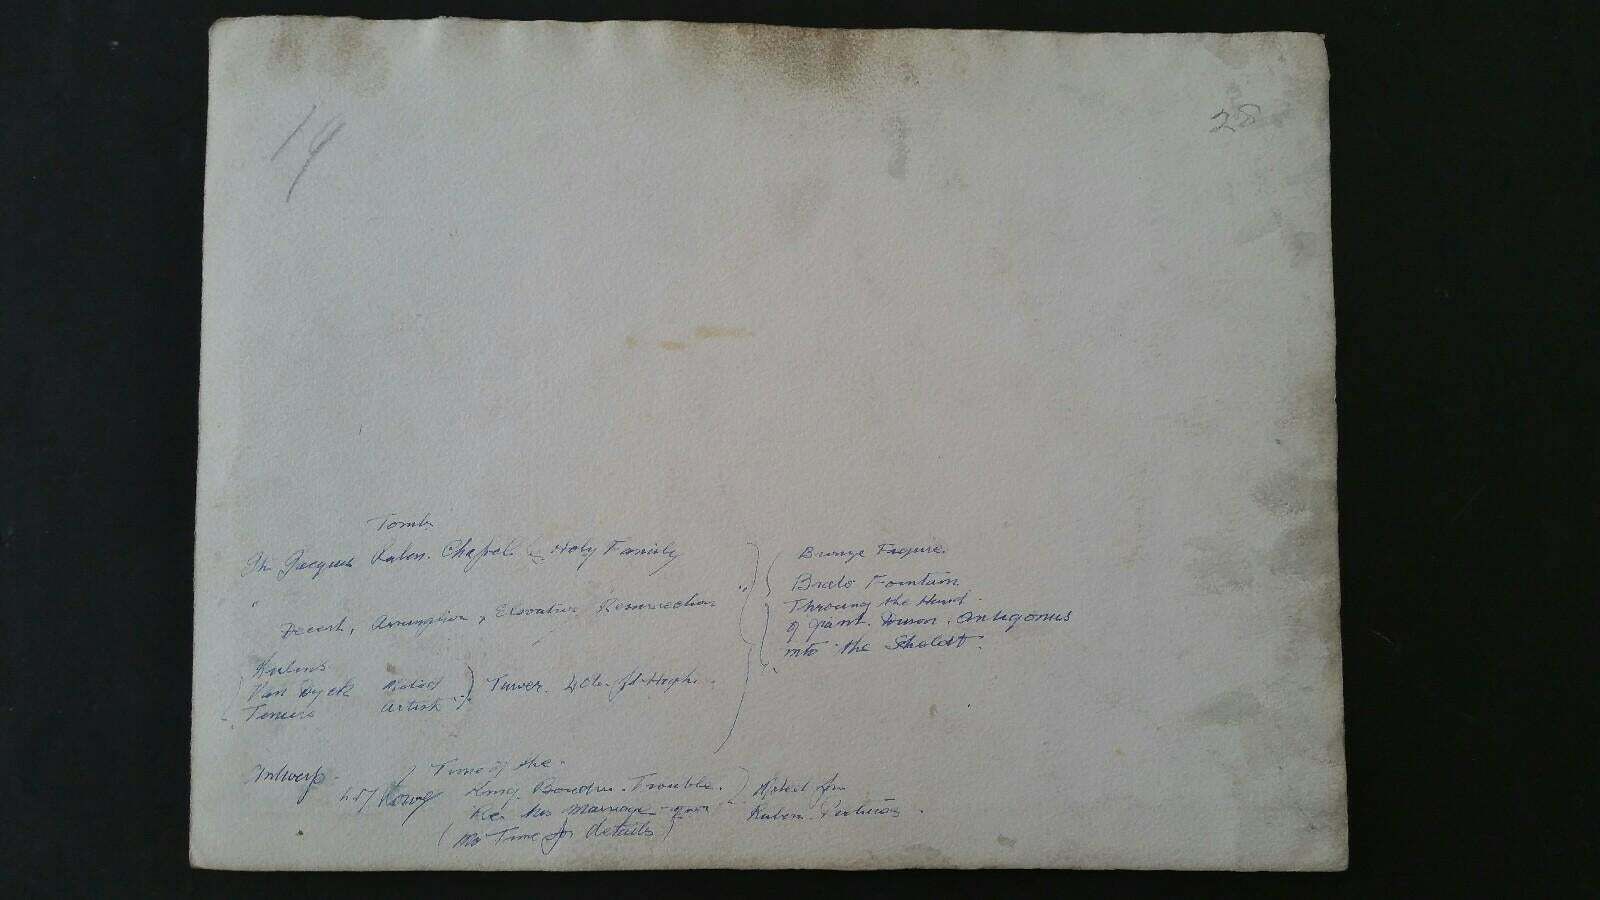 19
28
Tomb
St. Jacques Rubens. Chapel. Holy Family
Decent, Assumption, Elevation Resurrection
Rubens
Van Dyck Noted
Teniers artist
Tower. 402 ft. High.
Bronze Figure.
Brabo Fountain
Throwing the Hand
of giant. Antigonus
into the Scheldt.
Antwerp.
Time of the
King. Trouble.
Re. his marriage
(No Time for details)
Noted for
Rubens Pictures.